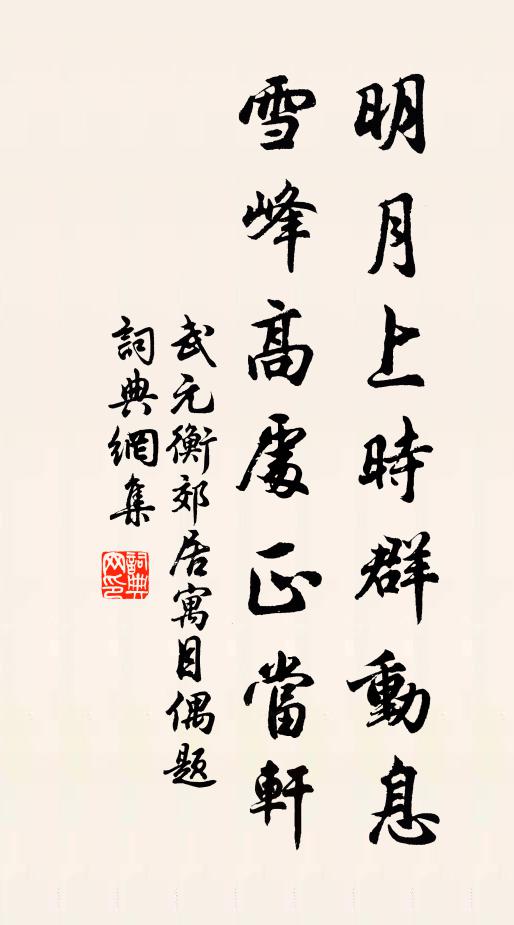 明月上時群動息
雪峰高處正當軒
武元衡郊居寓目偶題
詞典網集
詞典
网印